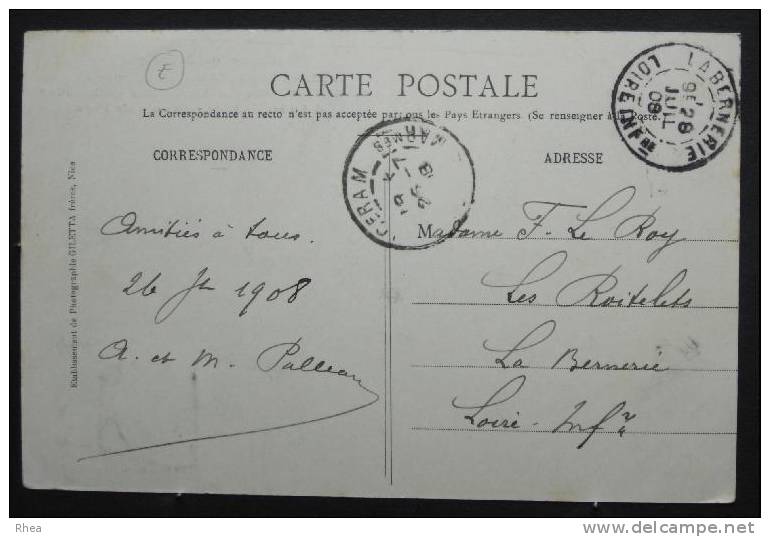 E
CARTE POSTALE
La Correspondance au recto n'est pas acceptée par tous les Pays Etrangers (Se renseigner à la Poste)
CORRESPONDANCE
ADRESSE
LA BERNERIE
9E
28
JUIL
08
LOIRE INF
GERAM
MARMES
Amitiés à tous.
26 Jt 1908
A. et M.
Madame F. Le Roy
Les Roitelets
La Bernerie
Loire-Infre
Etablissement de Photographie GILETTA frères, Nice
Rhea
www.delcampe.net